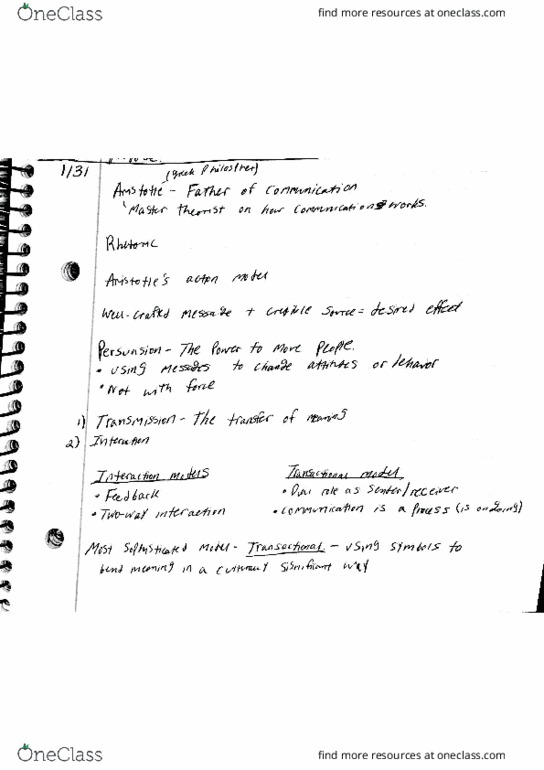 OneClass
find more resources at oneclass.com
1/31
(greek Philospher)
Aristotle - Father of Communication
Master theorist on how communication works.
Rhetoric
Aristotle's action model
Well-crafted message + credible source = desired effect
Persuasion - The Power to move People.
• Using messages to change attitudes or behavior
• Not with force
1) Transmission - The transfer of meaning
2) Interaction
Interaction models
Transactional model
• Feedback
• Dual role as sender/receiver
• Two-way interaction
• communication is a process (is ongoing)
Most Sophisticated model - Transactional - using symbols to
meaning in a culturally significant way
OneClass
find more resources at oneclass.com